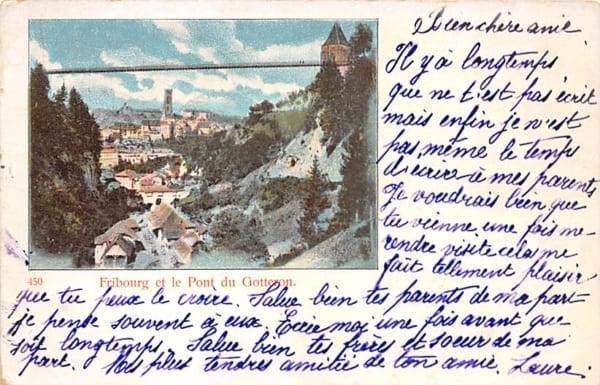 Bien chère amie
Il y a longtemps
que ne t'est pas écrit
mais enfin je n'est
pas même le temps
d'écrire à mes parents
Je voudrais bien que
tu vienne une fois me
rendre visite cela me
fait tellement plaisir
450 Fribourg et le Pont du Gotteron.
que tu peux le croire. Salue bien tes parents de ma part
je pense souvent à eux. Ecrie moi une fois avant que
soit longtemps. Salue bien tes frères et soeur de ma
part. Nos plus tendres amitié de ton amie. Laure.